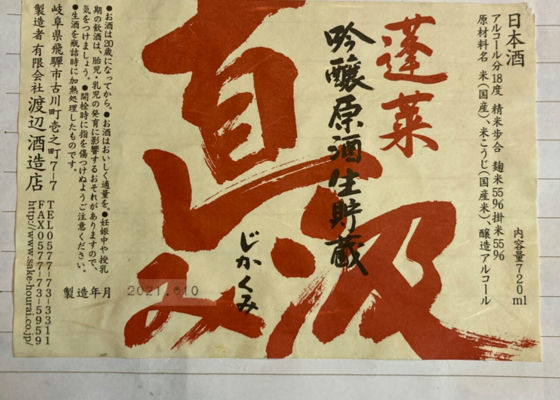 日本酒
アルコール分18度 精米歩合 麹米55% 掛米55%
原材料名 米(国産)、米こうじ(国産米)、醸造アルコール
内容量720ml
蓬莱
吟醸原酒生貯蔵
直汲み
じかくみ
●お酒は20歳になってから。●お酒はおいしく適量を。●妊娠中や授乳
期の飲酒は、胎児・乳児の発育に影響するおそれがありますので、
気をつけましょう。●開栓時に指を傷つけぬようご注意ください。
●生酒を瓶詰時に加熱処理したものです。
製造年月 2021.10
岐阜県飛騨市古川町壱之町7-7
製造者 有限会社 渡辺酒造店
TEL0577-73-3311
FAX0577-73-5959
http://www.sake-hourai.co.jp/